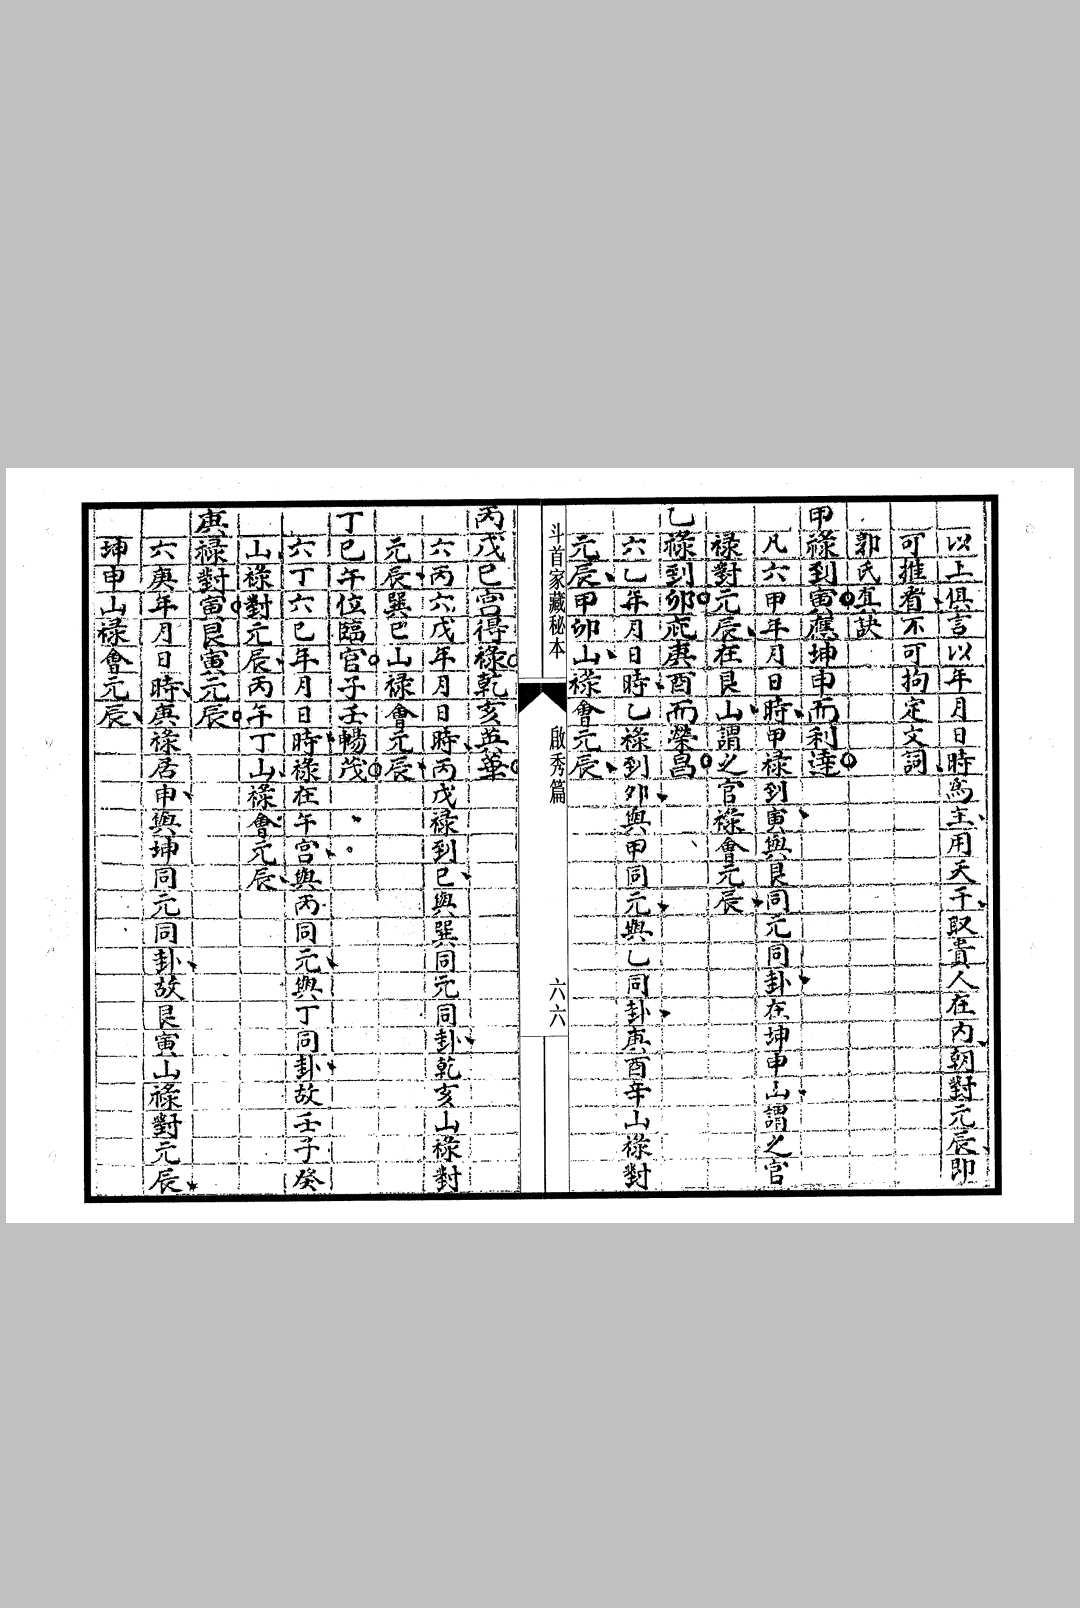 以上俱言以年月日時為主用天干取貴人在內朝對元辰即
可推看不可拘定文詞
郭氏直訣
甲祿到寅應坤申而利達
凡六甲年月日時甲祿到寅與艮同元同卦在坤申山謂之官
祿對元辰在艮山謂之官祿會元辰
乙祿到卯應庚酉而榮昌
六乙年月日時乙祿到卯與甲同元與乙同卦庚酉辛山祿對
元辰甲卯山祿會元辰
斗首家藏秘本
啟秀篇
六六
丙戊巳宮得祿乾亥並華
六丙六戊年月日時丙戊祿到巳與巽同元同卦乾亥山祿對
元辰巽巳山祿會元辰
丁巳午位臨官子壬暢茂
六丁六巳年月日時祿在午宮與丙同元與丁同卦故壬子癸
山祿對元辰丙午丁山祿會元辰
庚祿對寅艮寅元辰
六庚年月日時庚祿居申與坤同元同卦故艮寅山祿對元辰
坤申山祿會元辰